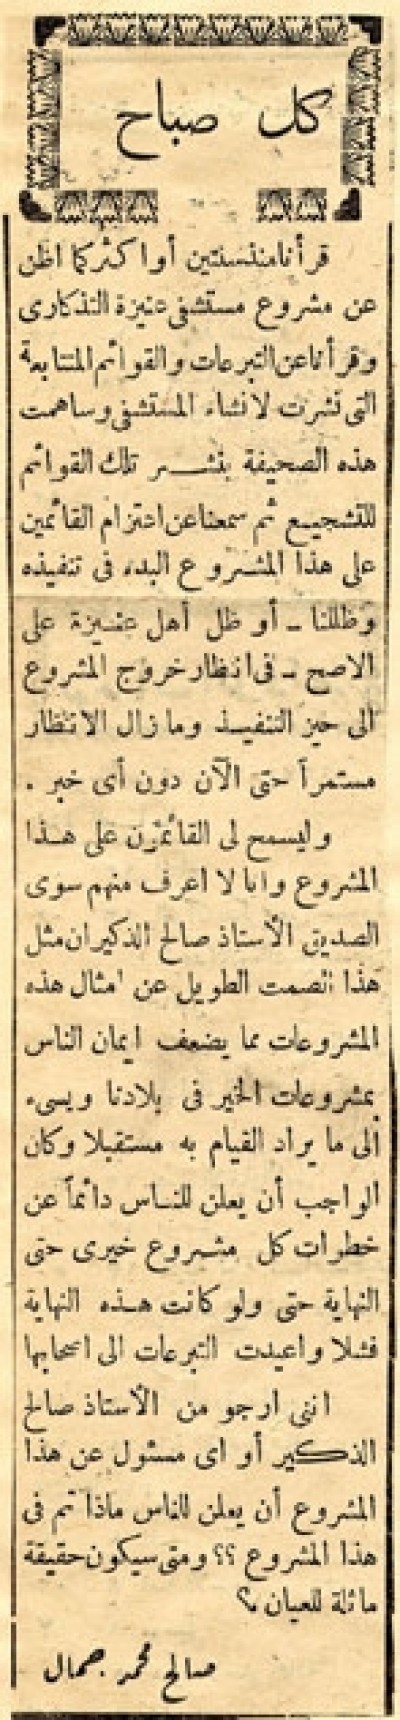 كل صباح
قرأنا منذ سنتين أو اكثر كما اظن
عن مشروع مستشفى عنيزة التذكارى
وقرأنا عن التبرعات والقوائم المتتابعة
التى نشرت لانشاء المستشفى وساهمت
هذه الصحيفة بنشر تلك القوائم
للتشجيع ثم سمعنا عن اعتزام القائمين
على هذا المشروع البدء فى تنفيذه
وظللنا - أو ظل أهل عنيزة على
الاصح - فى انتظار خروج المشروع
الى حيز التنفيذ وما زال الانتظار
مستمراً حتى الآن دون أى خبر .
وليسمح لى القائمون على هذا
المشروع وانا لا اعرف منهم سوى
الصديق الأستاذ صالح الذكير ان مثل
هذا الصمت الطويل عن امثال هذه
المشروعات مما يضعف ايمان الناس
بمشروعات الخير فى بلادنا ويسىء
الى ما يراد القيام به مستقبلا وكان
الواجب أن يعلن للناس دائماً عن
خطوات كل مشروع خيرى حتى
النهاية حتى ولو كانت هذه النهاية
فشلا واعيدت التبرعات الى اصحابها
اننى ارجو من الأستاذ صالح
الذكير أو اى مسئول عن هذا
المشروع أن يعلن للناس ماذا تم فى
هذا المشروع ؟؟ ومتى سيكون حقيقة
ماثلة للعيان ؟
صالح محمد جمال